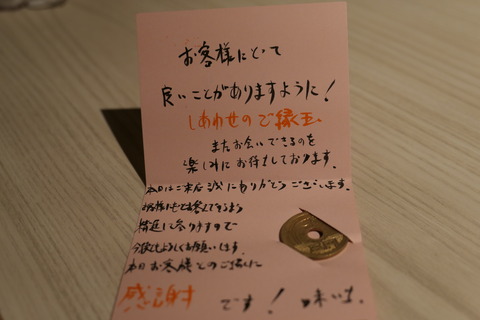 お客様にとって
良いことがありますように！
しあわせのご縁玉
またお会いできるのを
楽しみにお待ちしております。
本日はご来店誠にありがとうございます。
参りますので
今後ともよろしくお願いします。
本日お客様とのご縁に
感謝です！